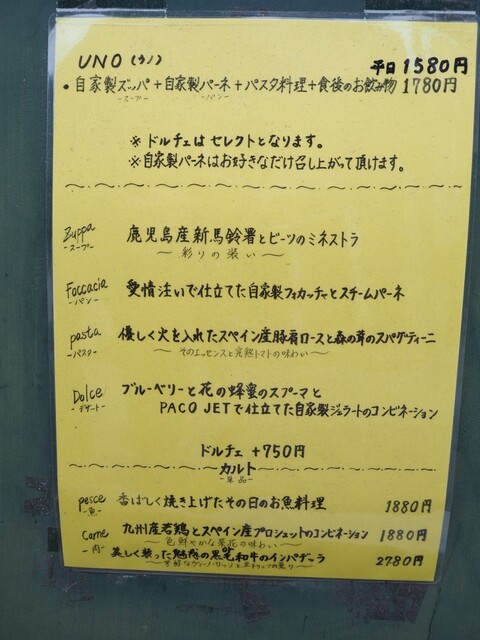 UNO (ウノ) 平日 1580円
• 自家製ズッパ+自家製パーネ+パスタ料理+食後のお飲み物 1780円
-スープ- -パン-
※ ドルチェは セレクトとなります。
※自家製パーネはお好きなだけ召し上がって頂けます。
Zuppa 鹿児島産新馬鈴薯とビーツのミネストラ
-スープ- 〜 彩りの装い 〜
Foccacia 愛情注いで仕立てた自家製フォカッチャとスチームパーネ
-パン-
pasta 優しく火を入れたスペイン産豚肩ロースと森の茸のスパゲティーニ
-パスタ- 〜 そのエッセンスと完熟トマトの味わい 〜
Dolce ブルーベリーと花の蜂蜜のスプーマと
-デザート- PACO JETで仕立てた自家製ジェラートのコンビネーション
ドルチェ +750円
カルト
-単品-
pesce 香ばしく焼き上げたその日のお魚料理 1880円
-魚-
Carne 九州産若鶏とスペイン産プロシュットのコンビネーション 1880円
-肉- 〜 色鮮やかな菜花の味わい 〜
美しく装った魅惑の黒毛和牛のインパデッラ 2780円